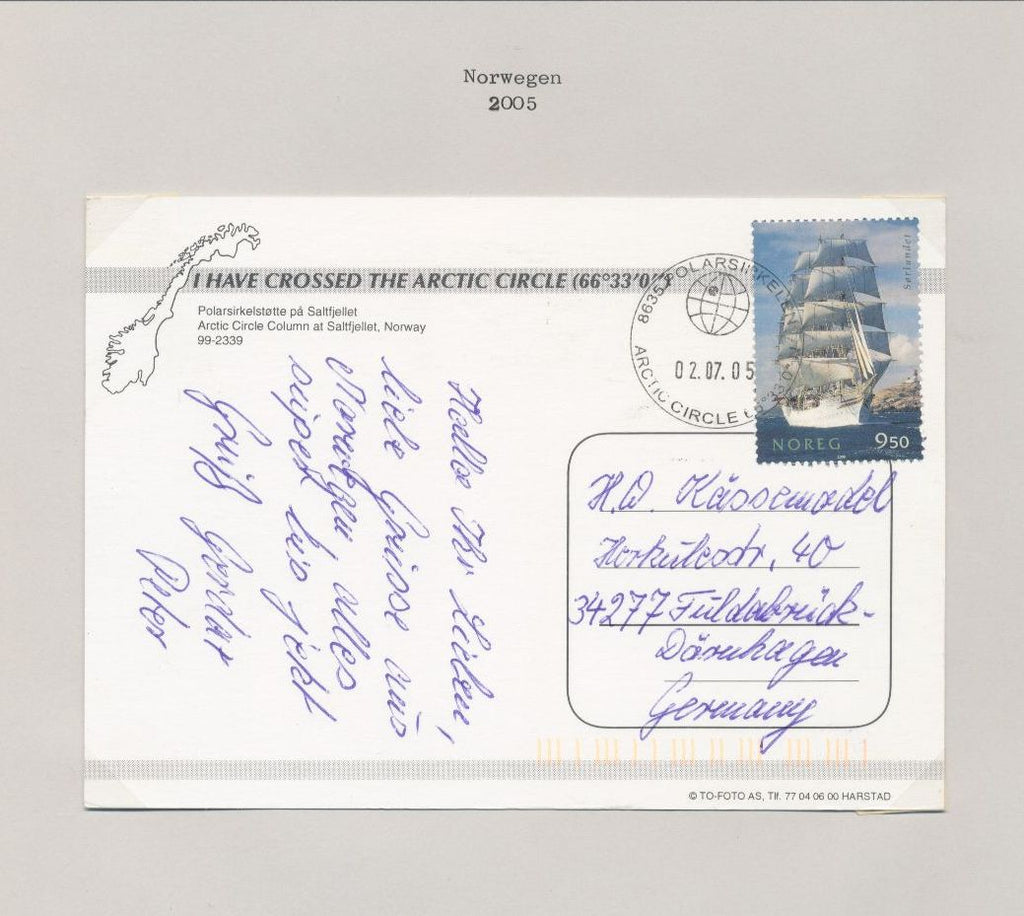 Norwegen
2005
I HAVE CROSSED THE ARCTIC CIRCLE (66°33'0
Polarsirkelstøtte på Saltfjellet
Arctic Circle Column at Saltfjellet, Norway
99-2339
8635 POLARSIRKELE
02.07.05
ARCTIC CIRCLE
Sørlandet
NOREG 9 50
Hallo Ihr Lieben,
liebe Grüsse aus
Norwegen, alles
super bis jetzt
Gruß
Peter
H.W. Kässemodel
Herkulesstr. 40
34277 Fuldabrück-
Dörnhagen
Germany
© TO-FOTO AS, Tlf. 77 04 06 00 HARSTAD